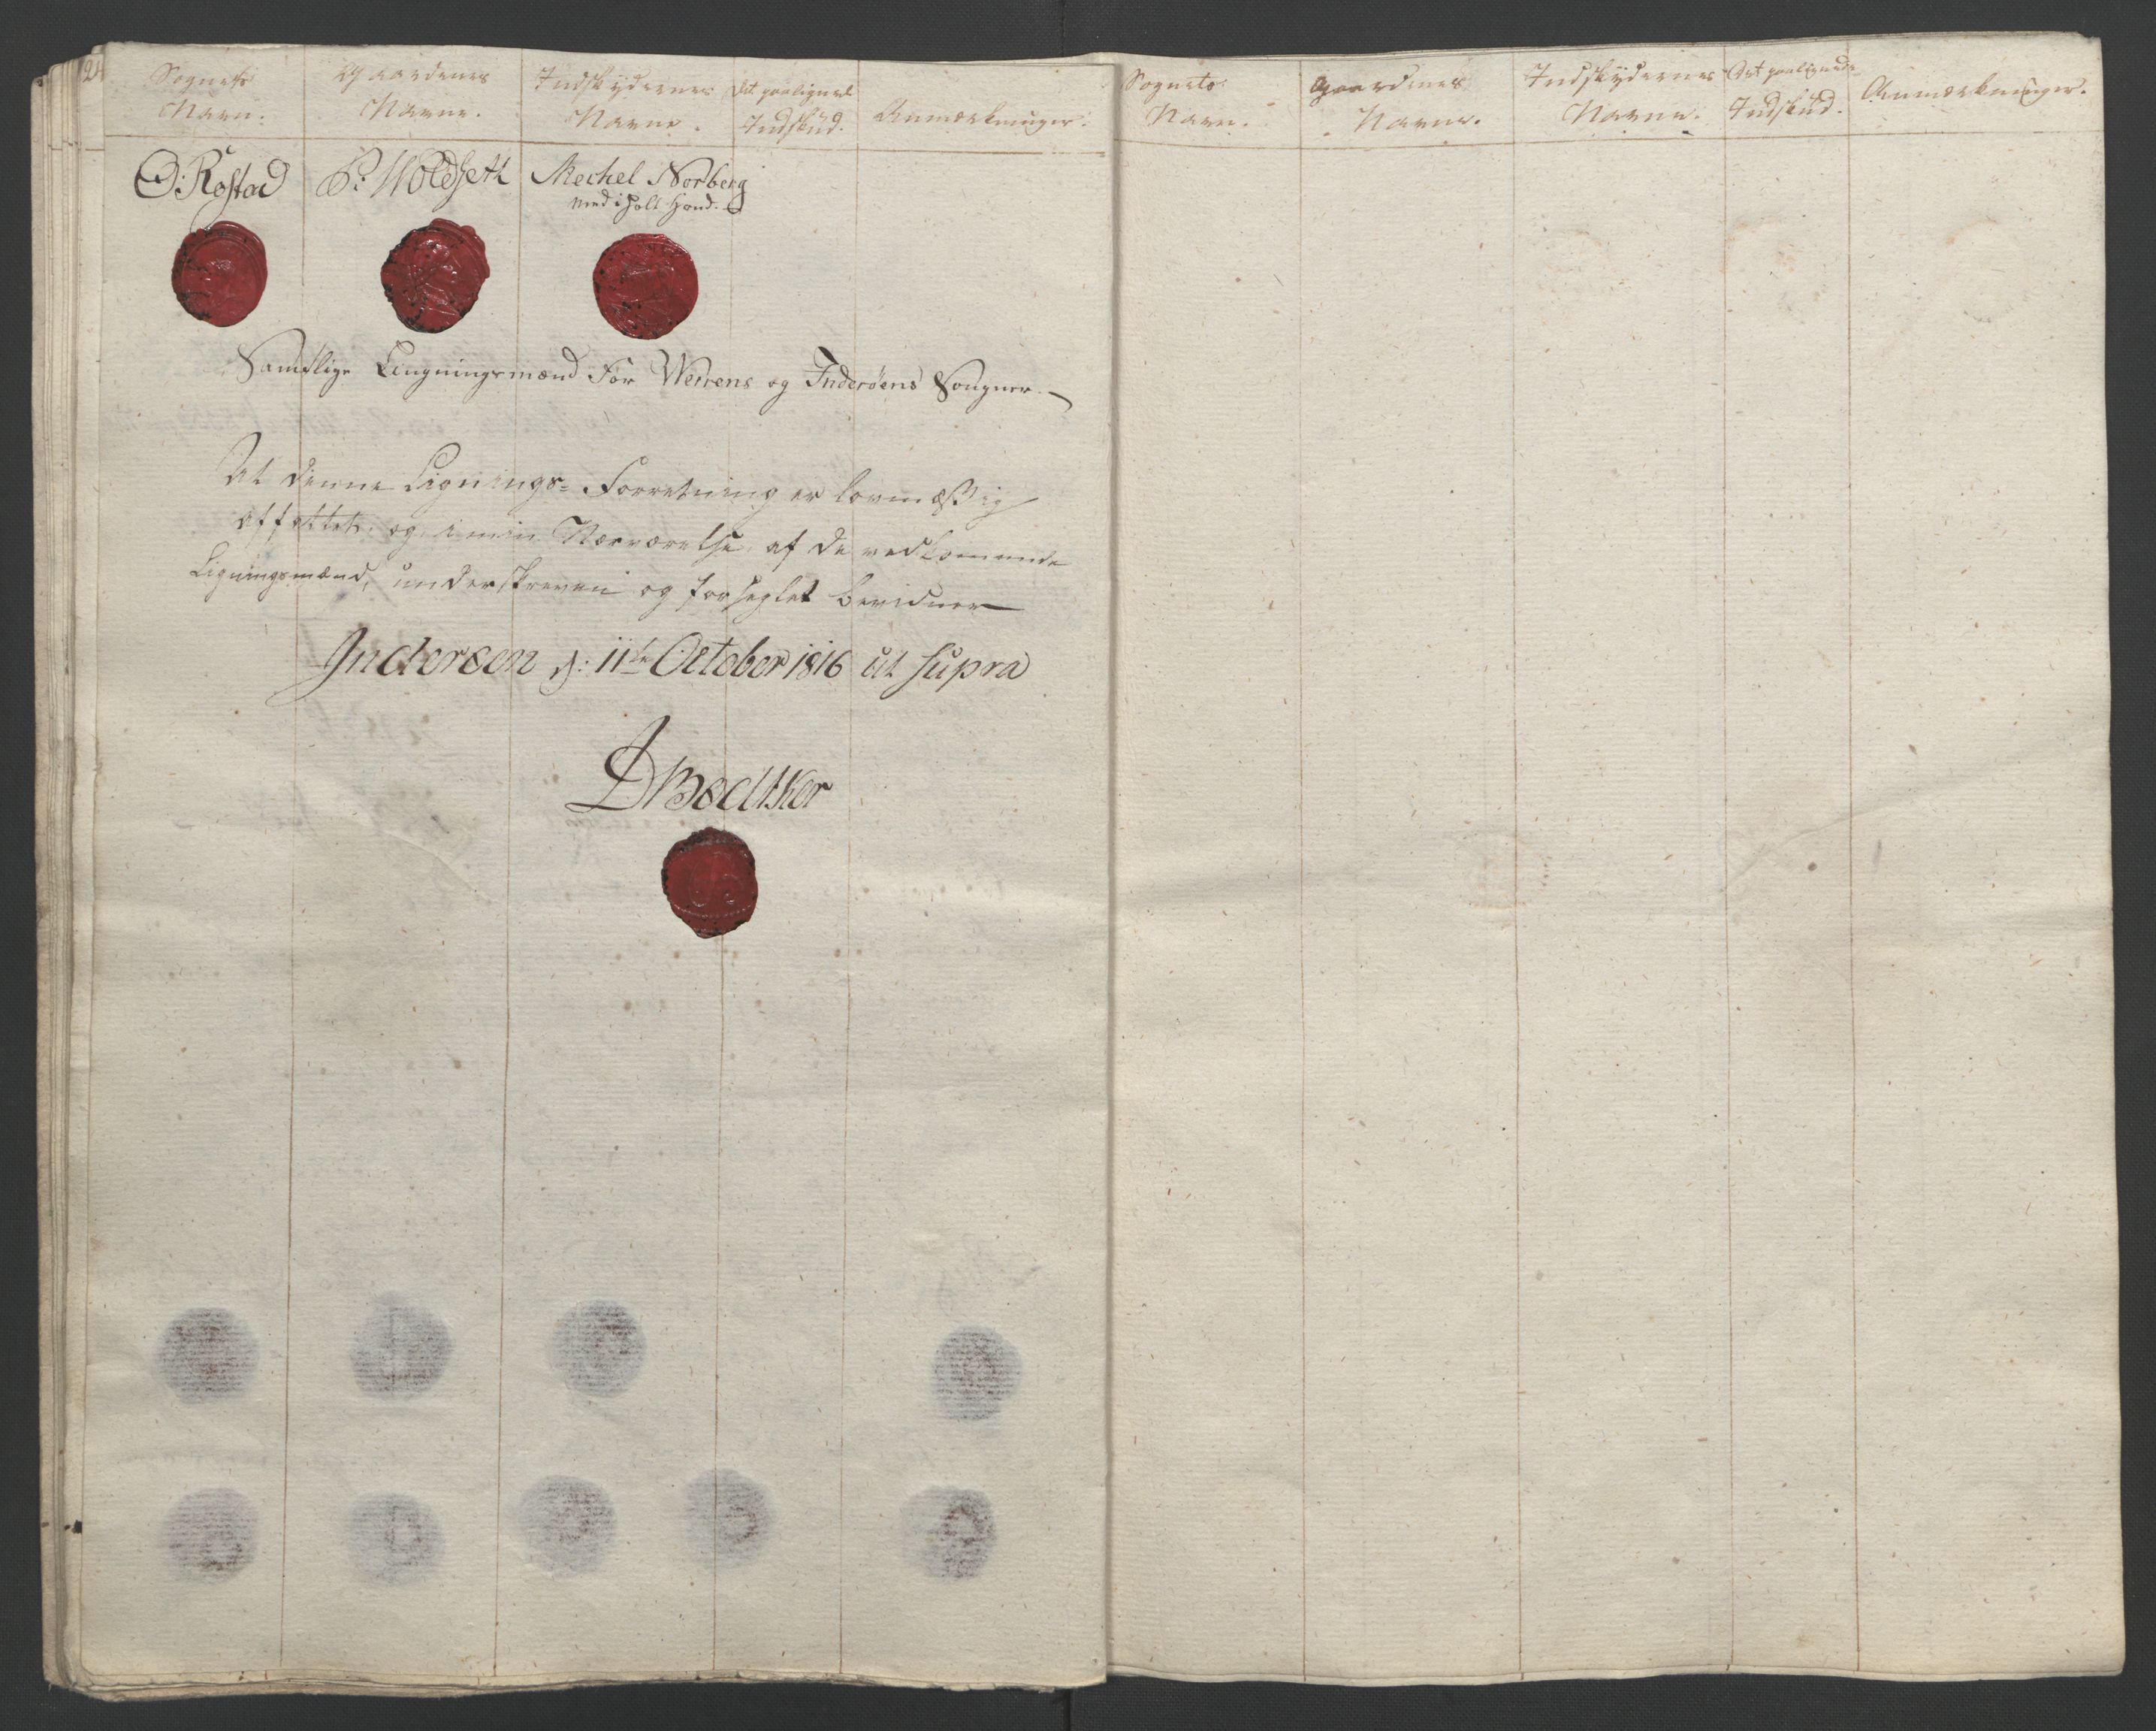 24
Sognets Navn. Gaardenes Navne. Indskydernes Navne. Det paalignede Indskud. Anmærkninger.
O: Rostad P: Woldseth Mechel Norberg
med i holt Haand.
Samtlige Lingningsmænd For Werrens og Inderøens Sougner.
At denne Lignings- Forretning er lovmæssig
affattet, og i min Nærværelse, af de vedkommende
Ligningsmænd, underskreven og forseglet bevidner
Inderøen d: 11te October 1816 ut supra
D Bødtker
Sognets Navn. Gaardenes Navne. Indskydernes Navne. Det paalignede Indskud. Anmærkninger.